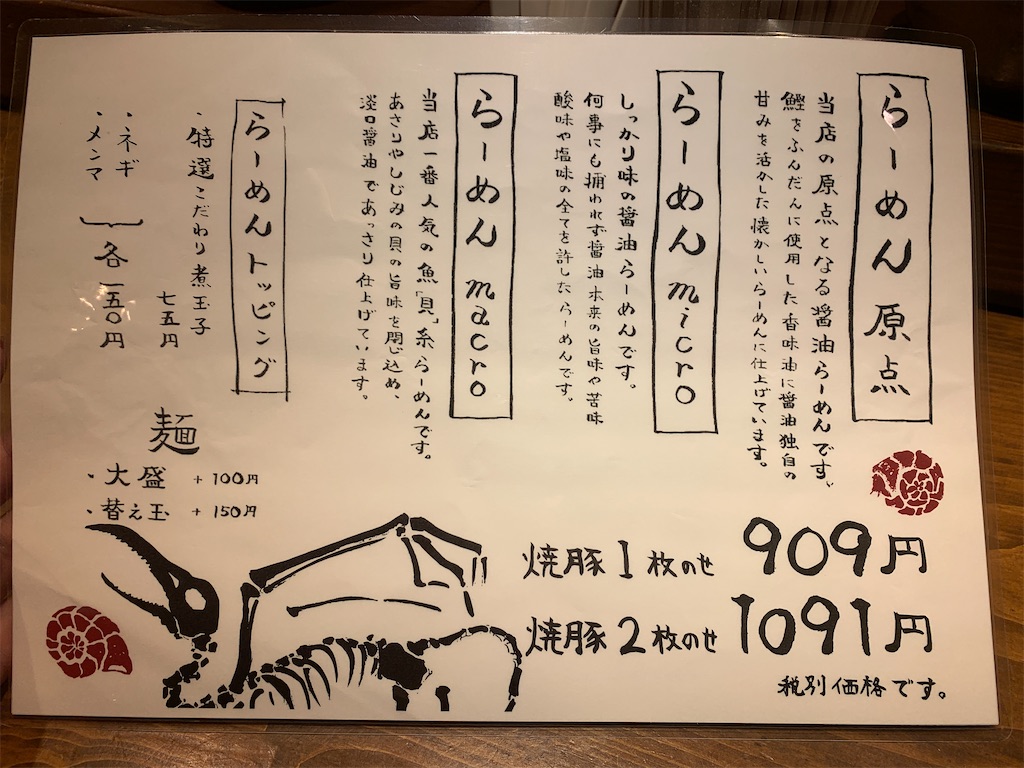 らーめん 原点
当店の原点となる醤油らーめんです。
鰹をふんだんに使用した香味油に醤油独自の
甘みを活かした懐かしいらーめんに仕上げています。
らーめん micro
しっかり味の醤油らーめんです。
何事にも捕われず醤油本来の旨味や苦味
酸味や塩味の全てを許したらーめんです。
らーめん macro
当店一番人気の魚「貝」系らーめんです。
あさりやしじみの貝の旨味を閉じ込め、
淡口醤油であっさり仕上げています。
らーめん トッピング
・特選こだわり煮玉子
七五円
・ネギ
・メンマ
各一五〇円
麺
・大盛 +100円
・替え玉 +150円
焼豚1枚のせ 909円
焼豚2枚のせ 1091円
税別価格です。